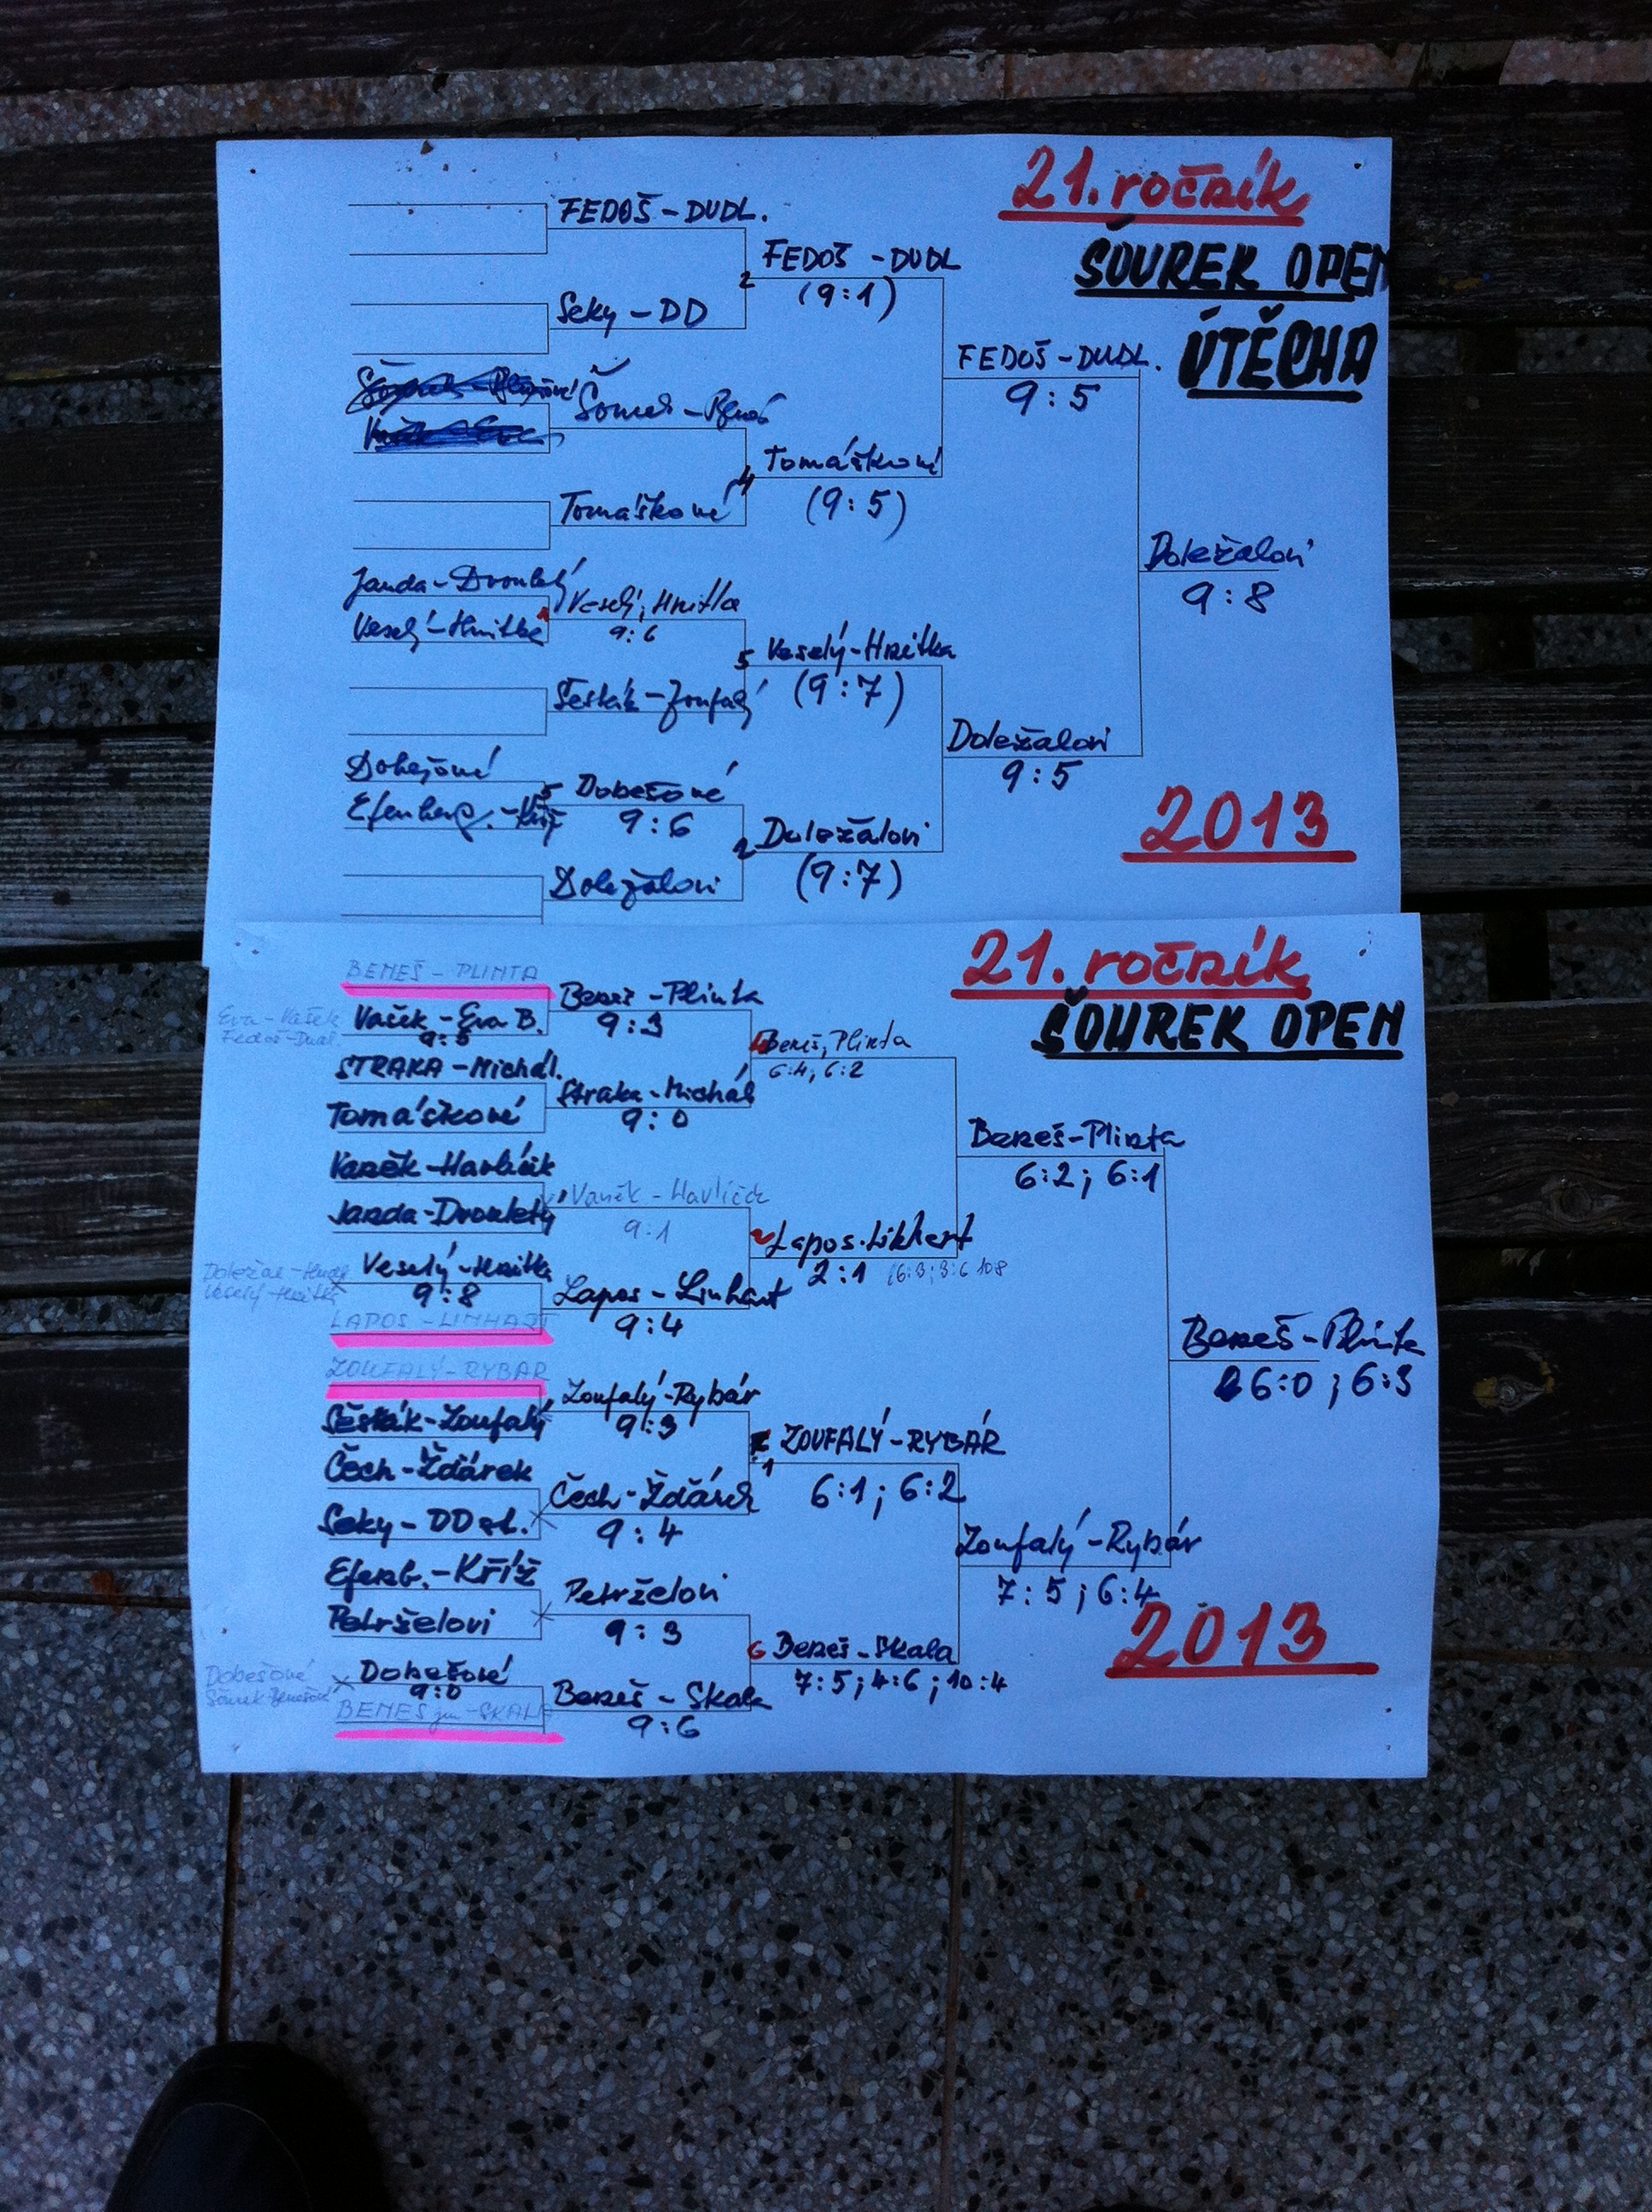 21. ročník
ŠOUREK OPEN
ÚTĚCHA
FEDOŠ - DUDL.
Seky - DD
Tomáškové
Janda - Dvouletý
Veselý - Hnitka
Veselý, Hnitka
9:6
Šesták - Zoufalý
Dobešové
Efenberg. - Kříž
Dobešové
9:6
Doležalovi
2 FEDOŠ - DUDL
(9:1)
4 Tomáškové
(9:5)
5 Veselý - Hnitka
(9:7)
2 Doležalovi
(9:7)
FEDOŠ - DUDL.
9:5
Doležalovi
9:5
Doležalovi
9:8
2013
21. ročník
ŠOUREK OPEN
BENEŠ - PLINTA
Eva - Vašek
Fedoš - Dudl.
Vašek - Eva B.
STRAKA - Michal.
Tomáškové
Vaněk - Havlíček
Janda - Dvouletý
Veselý - Hnitka
Veselý - Hnitka
9:8
LAPOS - LINHART
ZOUFALÝ - RYBÁR
Šesták - Zoufalý
Čech - Žďárek
Seky - DD st.
Efenb. - Kříž
Petrželovi
Dobešové
Dobešové
9:0
BENEŠ jun - SKALA
Beneš - Plinta
9:3
Straka - Michal
9:0
Vaněk - Havlíček
9:1
Lapos - Linhart
9:4
Zoufalý - Rybár
9:3
Čech - Žďárek
9:4
Petrželovi
9:3
Beneš - Skala
9:6
Beneš, Plinta
6:4; 6:2
Lapos - Linhart
2:1 (6:3; 3:6 10:8
ZOUFALÝ - RYBÁR
6:1; 6:2
6 Beneš - Skala
7:5; 4:6; 10:4
Beneš - Plinta
6:2; 6:1
Zoufalý - Rybár
7:5; 6:4
Beneš - Plinta
6:0; 6:3
2013